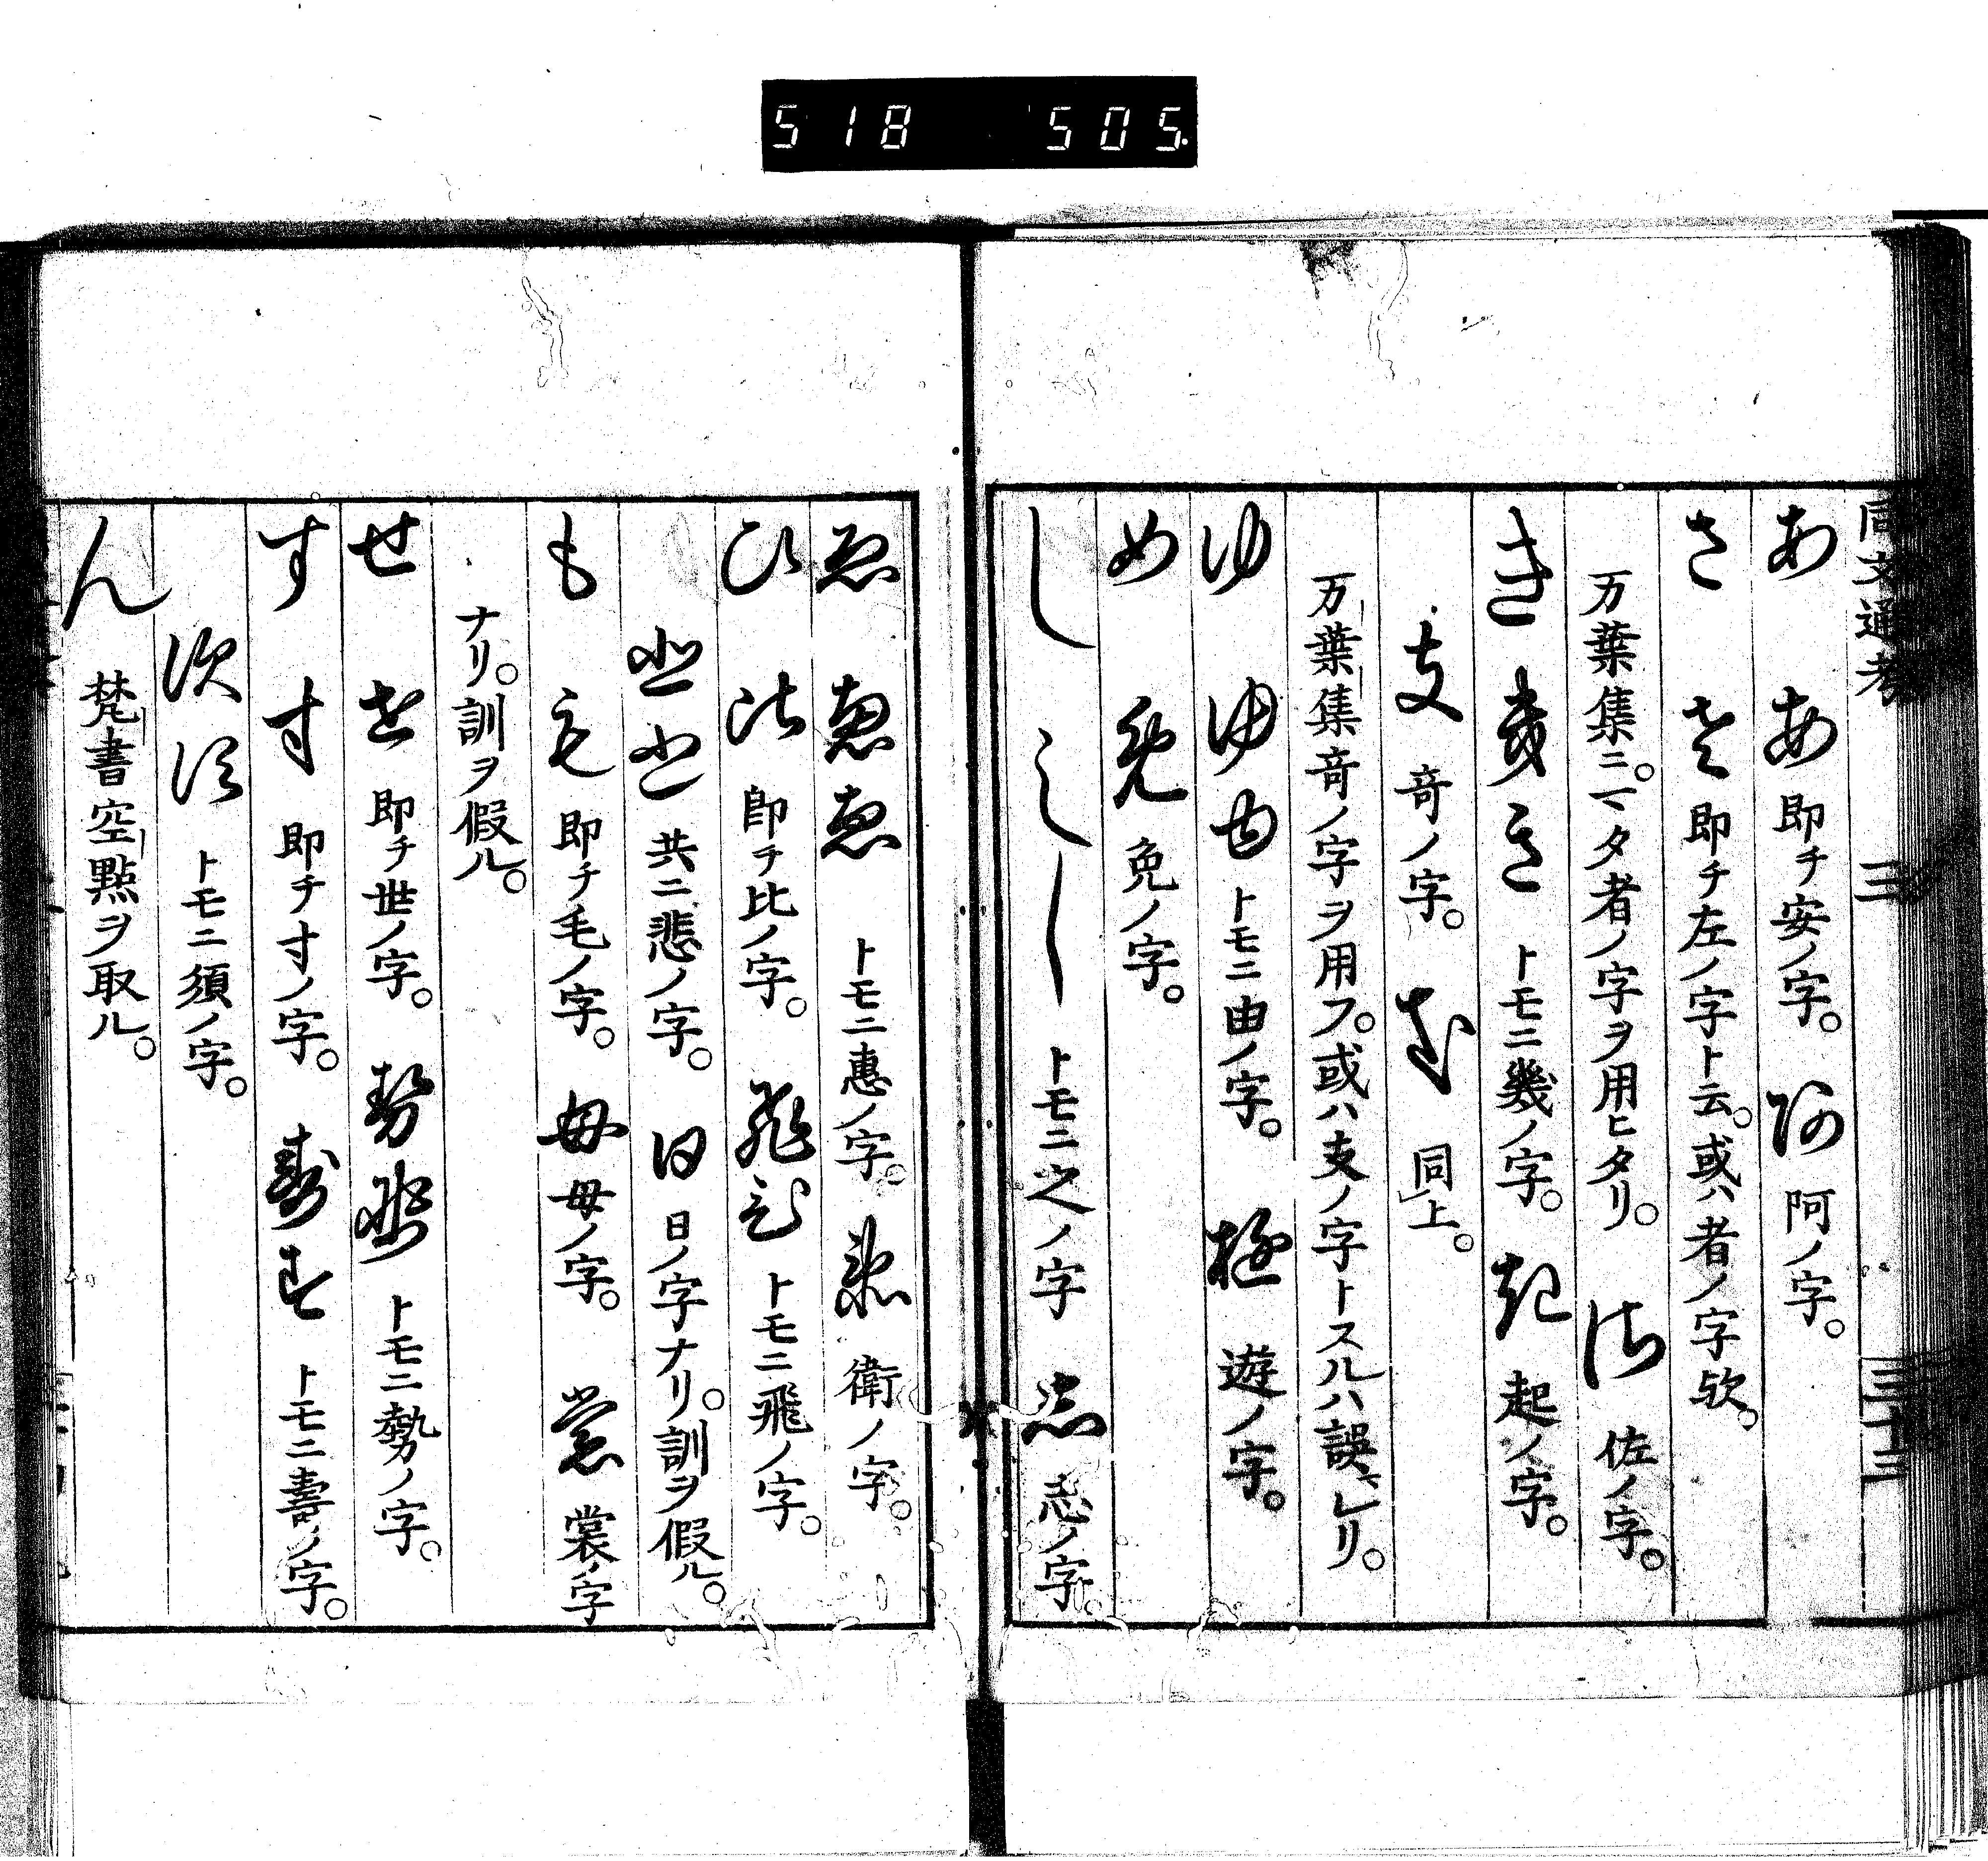 518 505
同文通考 三 三十三
あ あ 即チ安ノ字。阿 阿ノ字。
さ さ 即チ左ノ字ト云。或ハ者ノ字欤。
万葉集ニ。マタ者ノ字ヲ用ヒタリ。佐 佐ノ字。
き 幾 き トモニ幾ノ字。起 起ノ字。
支 竒ノ字。 き 同上。
万葉集竒ノ字ヲ用フ。或ハ支ノ字トスルハ誤レリ。
ゆ ゆ 由 トモニ由ノ字。遊 遊ノ字。
め 免 免ノ字。
し し し トモニ之ノ字 志 志ノ字。
ゑ 惠 惠 トモニ惠ノ字。衛 衛ノ字。
ひ 比 即チ比ノ字。飛 飛 トモニ飛ノ字。
悲 悲 共ニ悲ノ字。日 日ノ字ナリ。訓ヲ假ル。
も 毛 即チ毛ノ字。母 母ノ字。裳 裳ノ字
ナリ。訓ヲ假ル。
せ せ 即チ世ノ字。勢 勢 トモニ勢ノ字。
す 寸 即チ寸ノ字。壽 す トモニ壽ノ字。
須 須 トモニ須ノ字。
ん 梵書空點ヲ取ル。